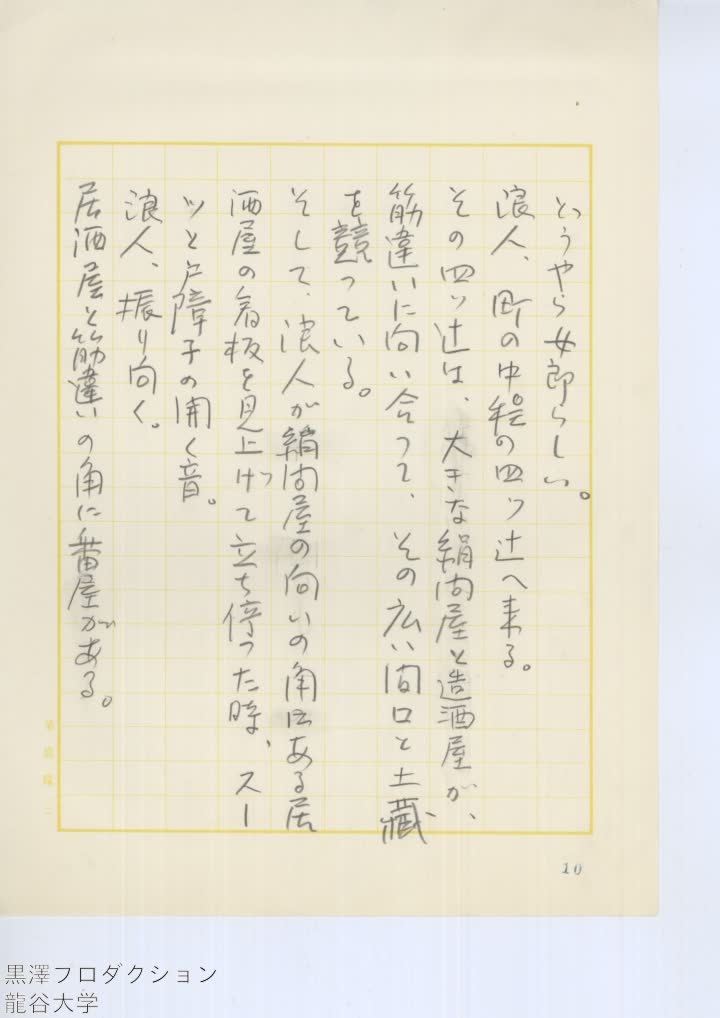 どうやら女郎らしい。
浪人、町の中程の四ツ辻へ来る。
その四ツ辻は、大きな絹問屋と造酒屋が、
筋違いに向い合って、その広い間口と土蔵
を競っている。
そして、浪人が絹問屋の向いの角にある居
酒屋の看板を見上げて立ち停った時、スー
ッと戸障子の開く音。
浪人、振り向く。
居酒屋と筋違いの角に番屋がある。
10
黒澤プロダクション
龍谷大学